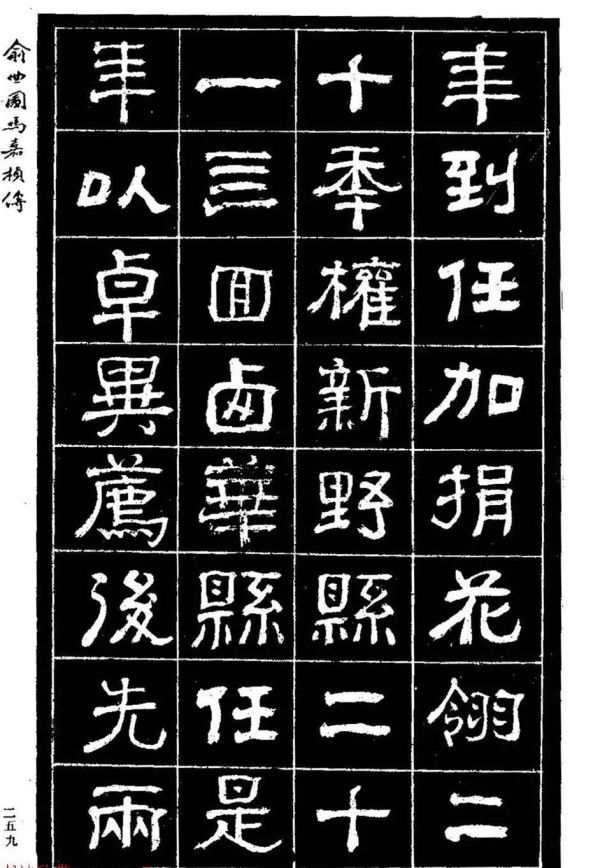 年到任加捐花翎二
十秊權新野縣二十
一三回卥華縣任是
年以卓異薦後先兩
俞曲園馬嘉楨傳
二五九